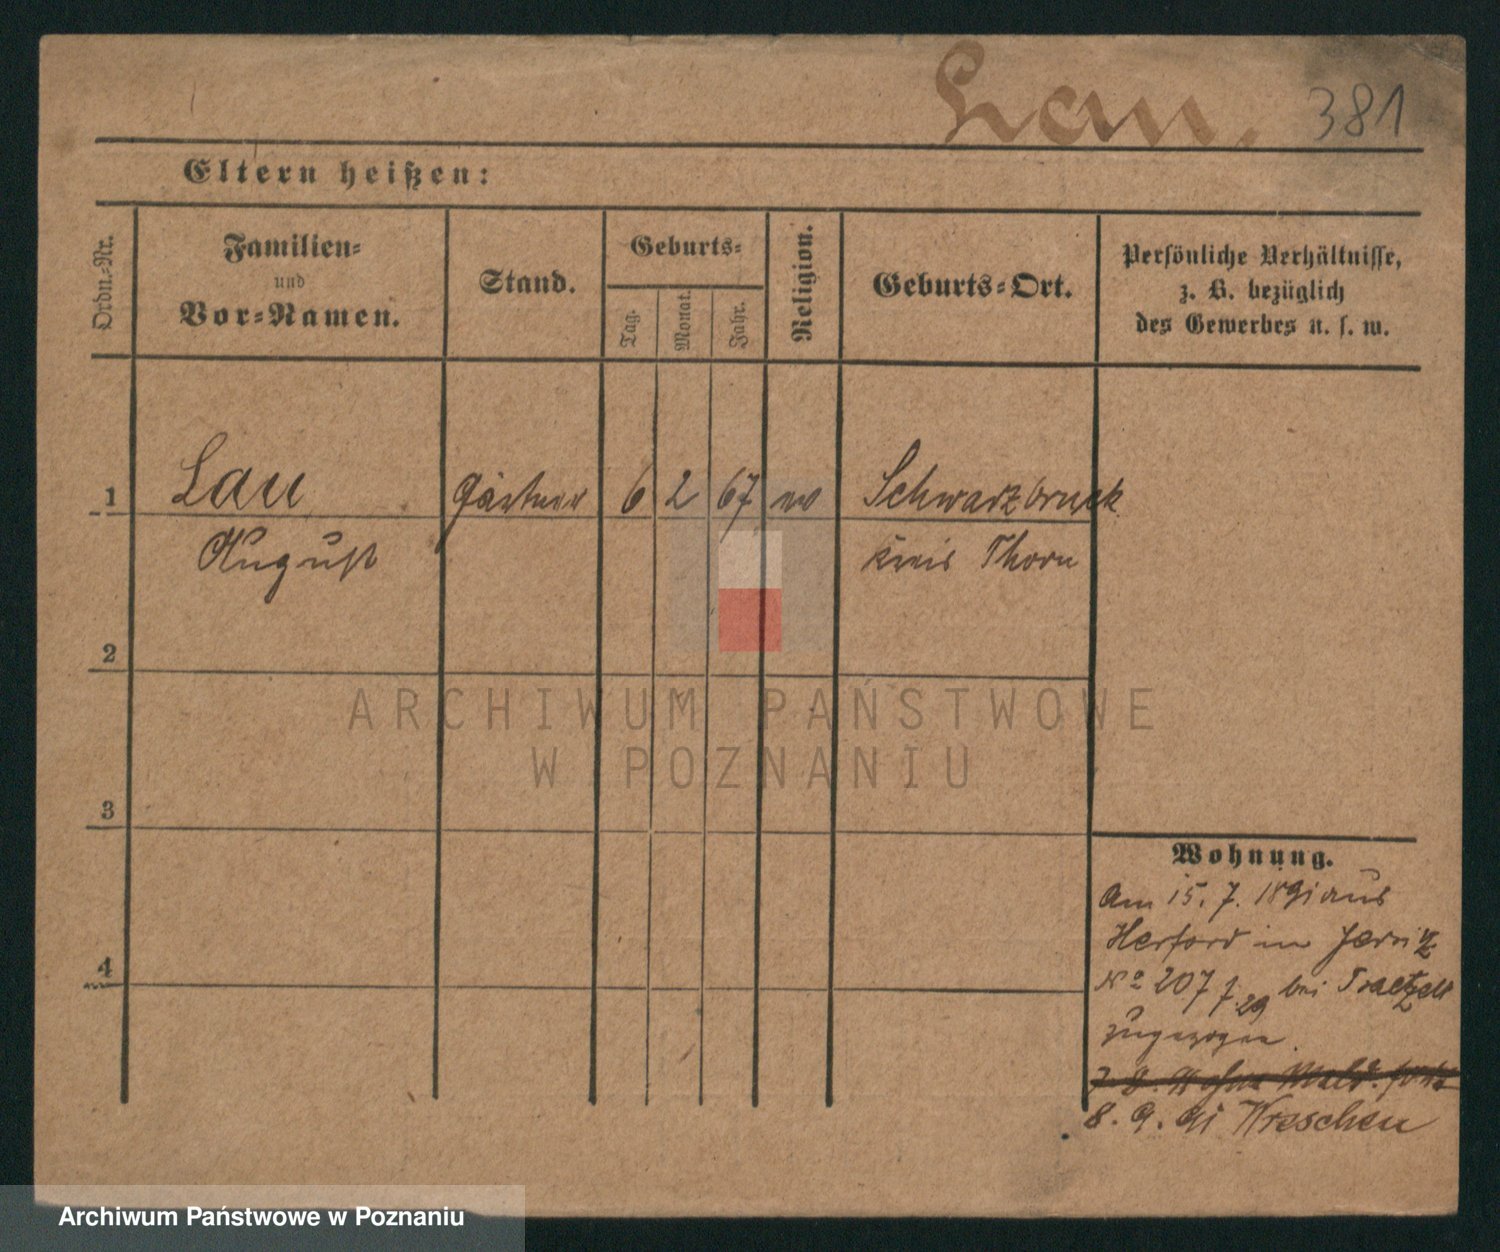 Lau, 381
Eltern heißen:
Ordn.-Nr.
Familien-
und
Vor-Namen.
Stand.
Geburts-
Tag.
Monat.
Jahr.
Religion.
Geburts-Ort.
Persönliche Verhältnisse,
z. B. bezüglich
des Gewerbes u. s. w.
1 Lau Gärtner 6 2 67 ev Schwarzbruch
August Kreis Thorn
2
3
4
Wohnung.
Am 15. 7. 1891 aus
Herford in Jersitz
No 207 bei
zugezogen.
8. 9. 91 Wreschen
ARCHIWUM PAŃSTWOWE
W POZNANIU
Archiwum Państwowe w Poznaniu